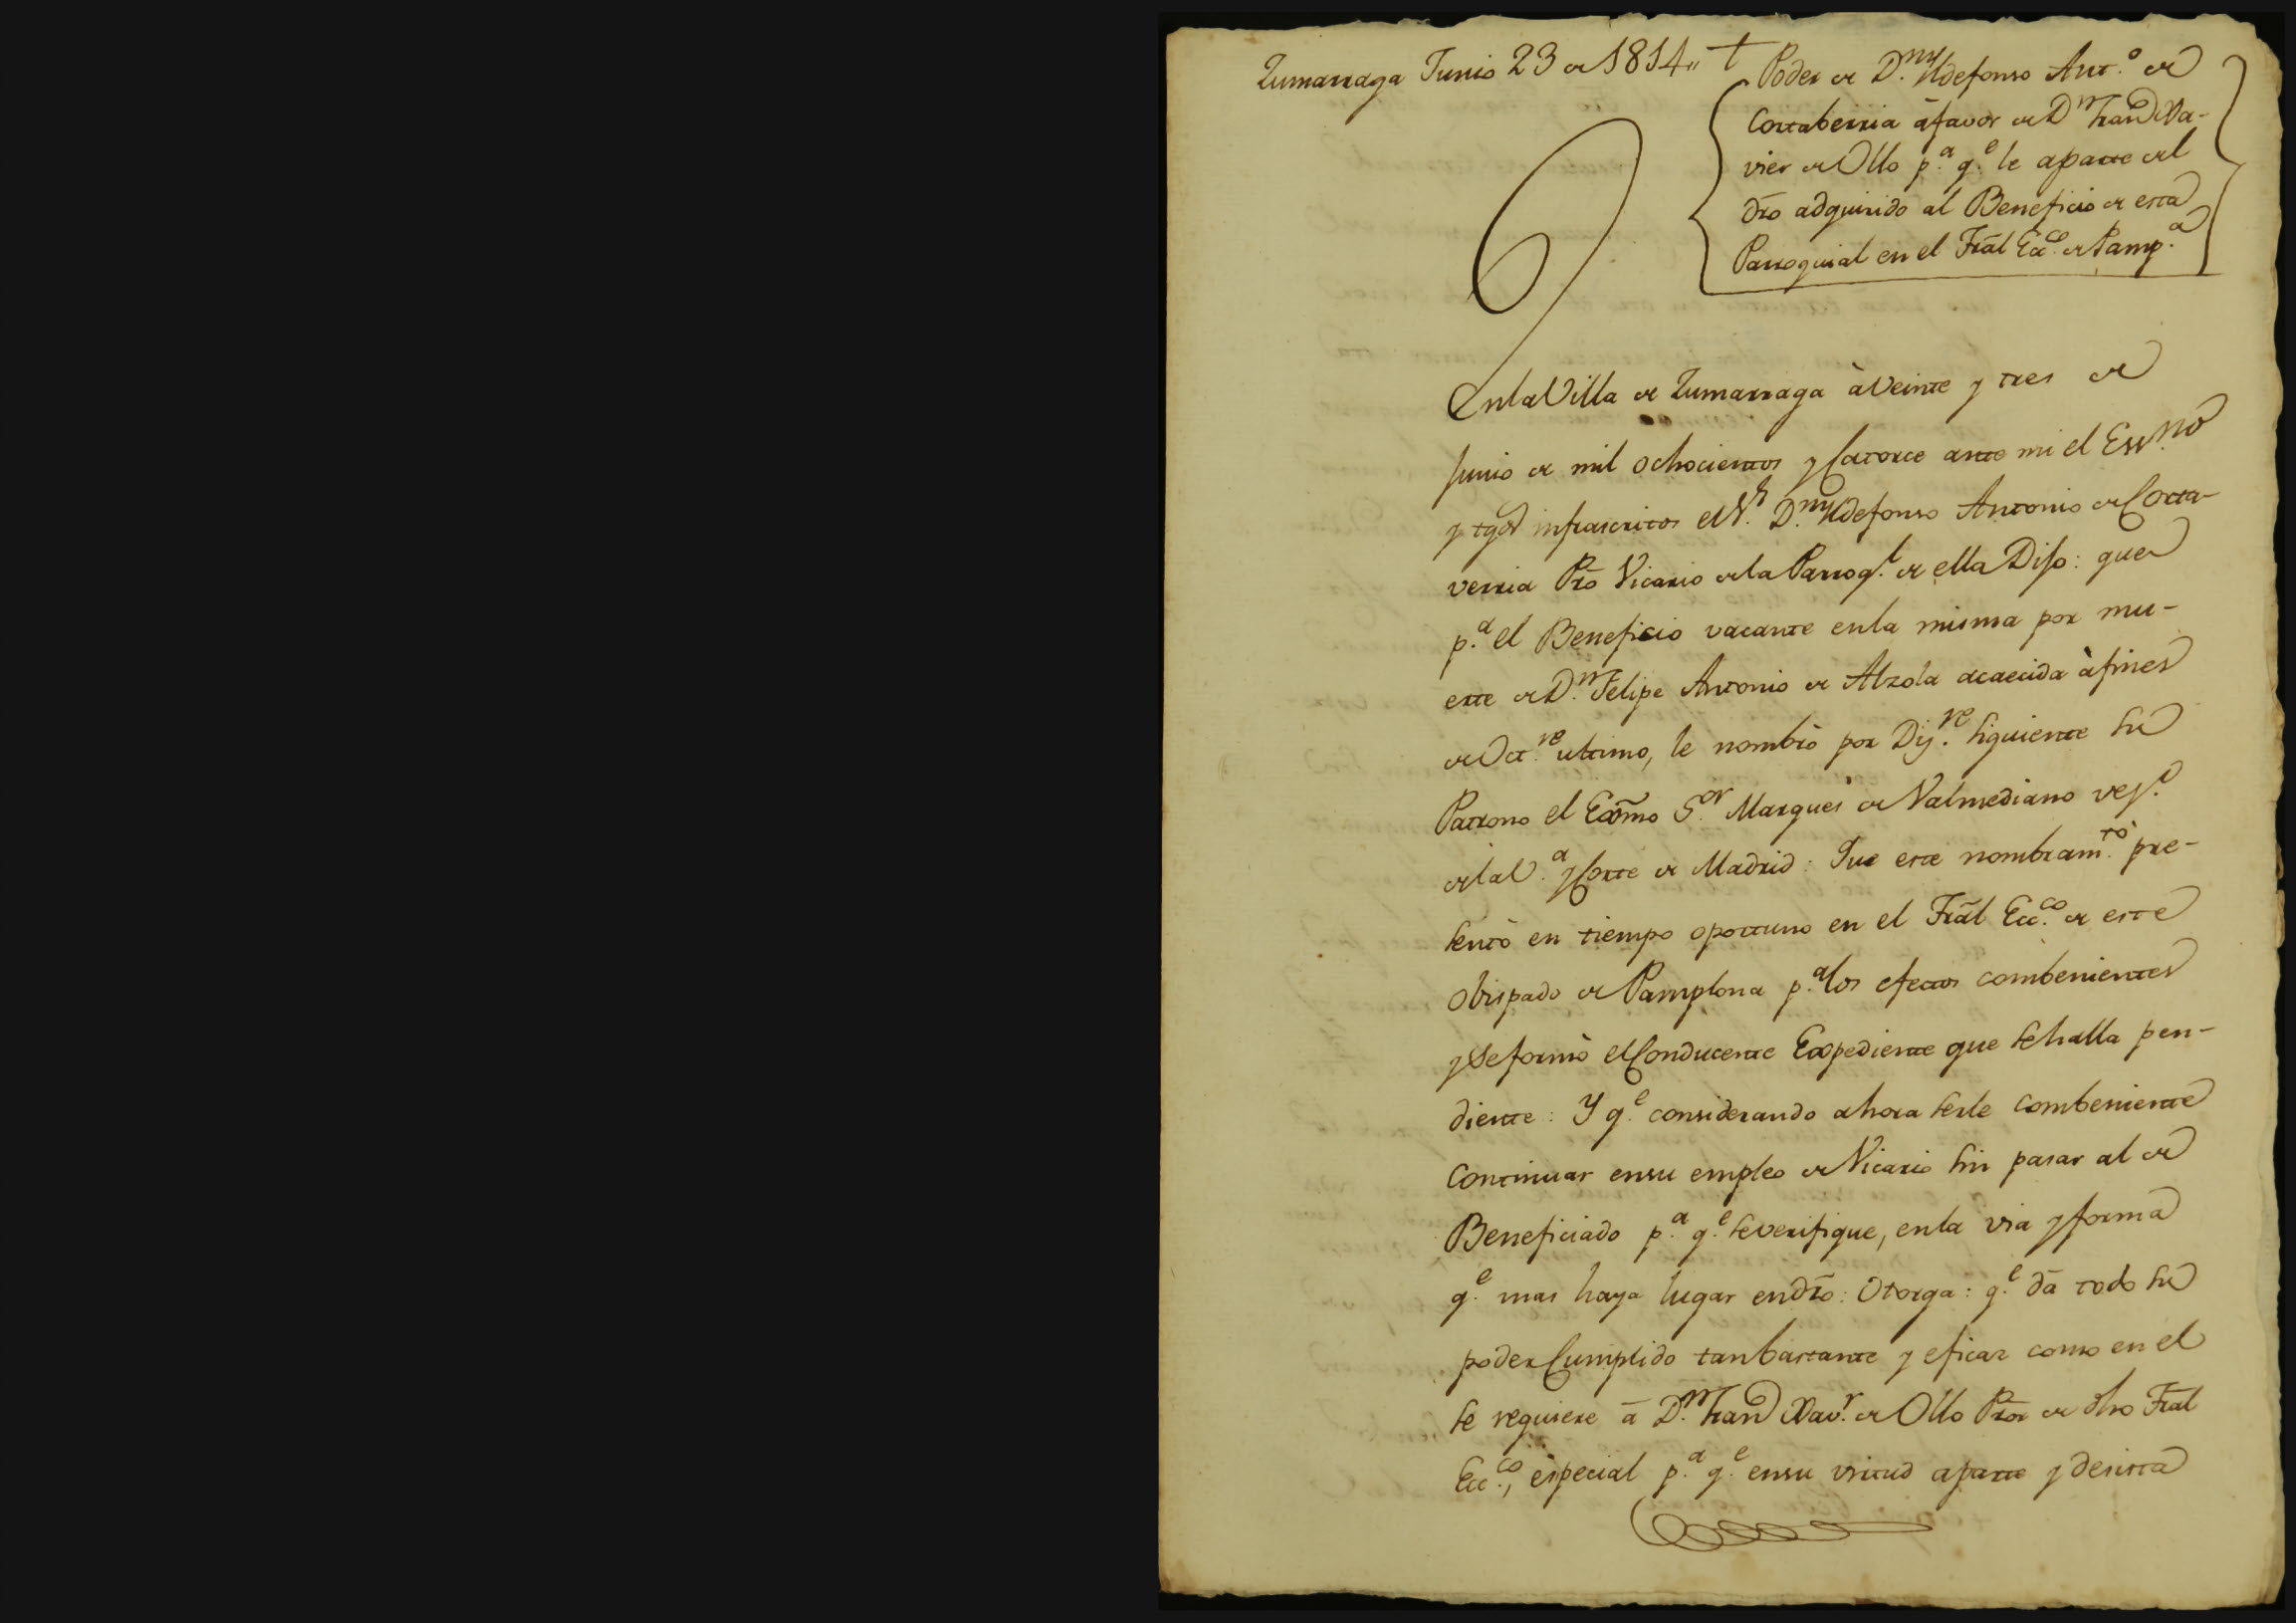 Zumarraga Junio 23 de 1814,, †
Poder de D.n Yldefonso Ant.o de
Cortaberria à favor de D.n Fran.co Xa-
vier de Ollo p.a q.e le aparte del
dr̃o adquirido al Beneficio de esta
Parroquial en el Tral Ecc.co de Pamp.a
En la Villa de Zumarraga à Veinte y tres de
Junio de mil ochocientos y Catorce ante mi el Ess.no
y tgos infrascritos el S.r D.n Yldefonso Antonio de Corta-
verria Pr̃o Vicario de la Parroq.l de ella Dijo: que
p.a el Beneficio vacante en la misma por mu-
erte de D.n Felipe Antonio de Alzola acaecida à fines
de Oct.re ultimo, le nombrò por Diz.re siguiente su
Patrono el Exm̃o S.or Marques de Valmediano vez.o
de la V.a y Corte de Madrid: Que este nombram.to pre-
sentò en tiempo oportuno en el Tral Ecc.co de este
Obispado de Pamplona p.a los efectos combenientes
y se formò el Conducente Expediente que se halla pen-
diente: Y q.e considerando ahora serle combeniente
Continuar en su empleo de Vicario sin pasar al de
Beneficiado p.a q.e se verifique, en la via y forma
q.e mas haya lugar en dr̃o: Otorga: q.e dà todo su
poder Cumplido tan bastante y eficaz como en el
se requiere à D.n Fran.co Xav.r de Ollo Pror de dho Tral
Ecc.co, especial p.a q.e en su virtud aparte y desista